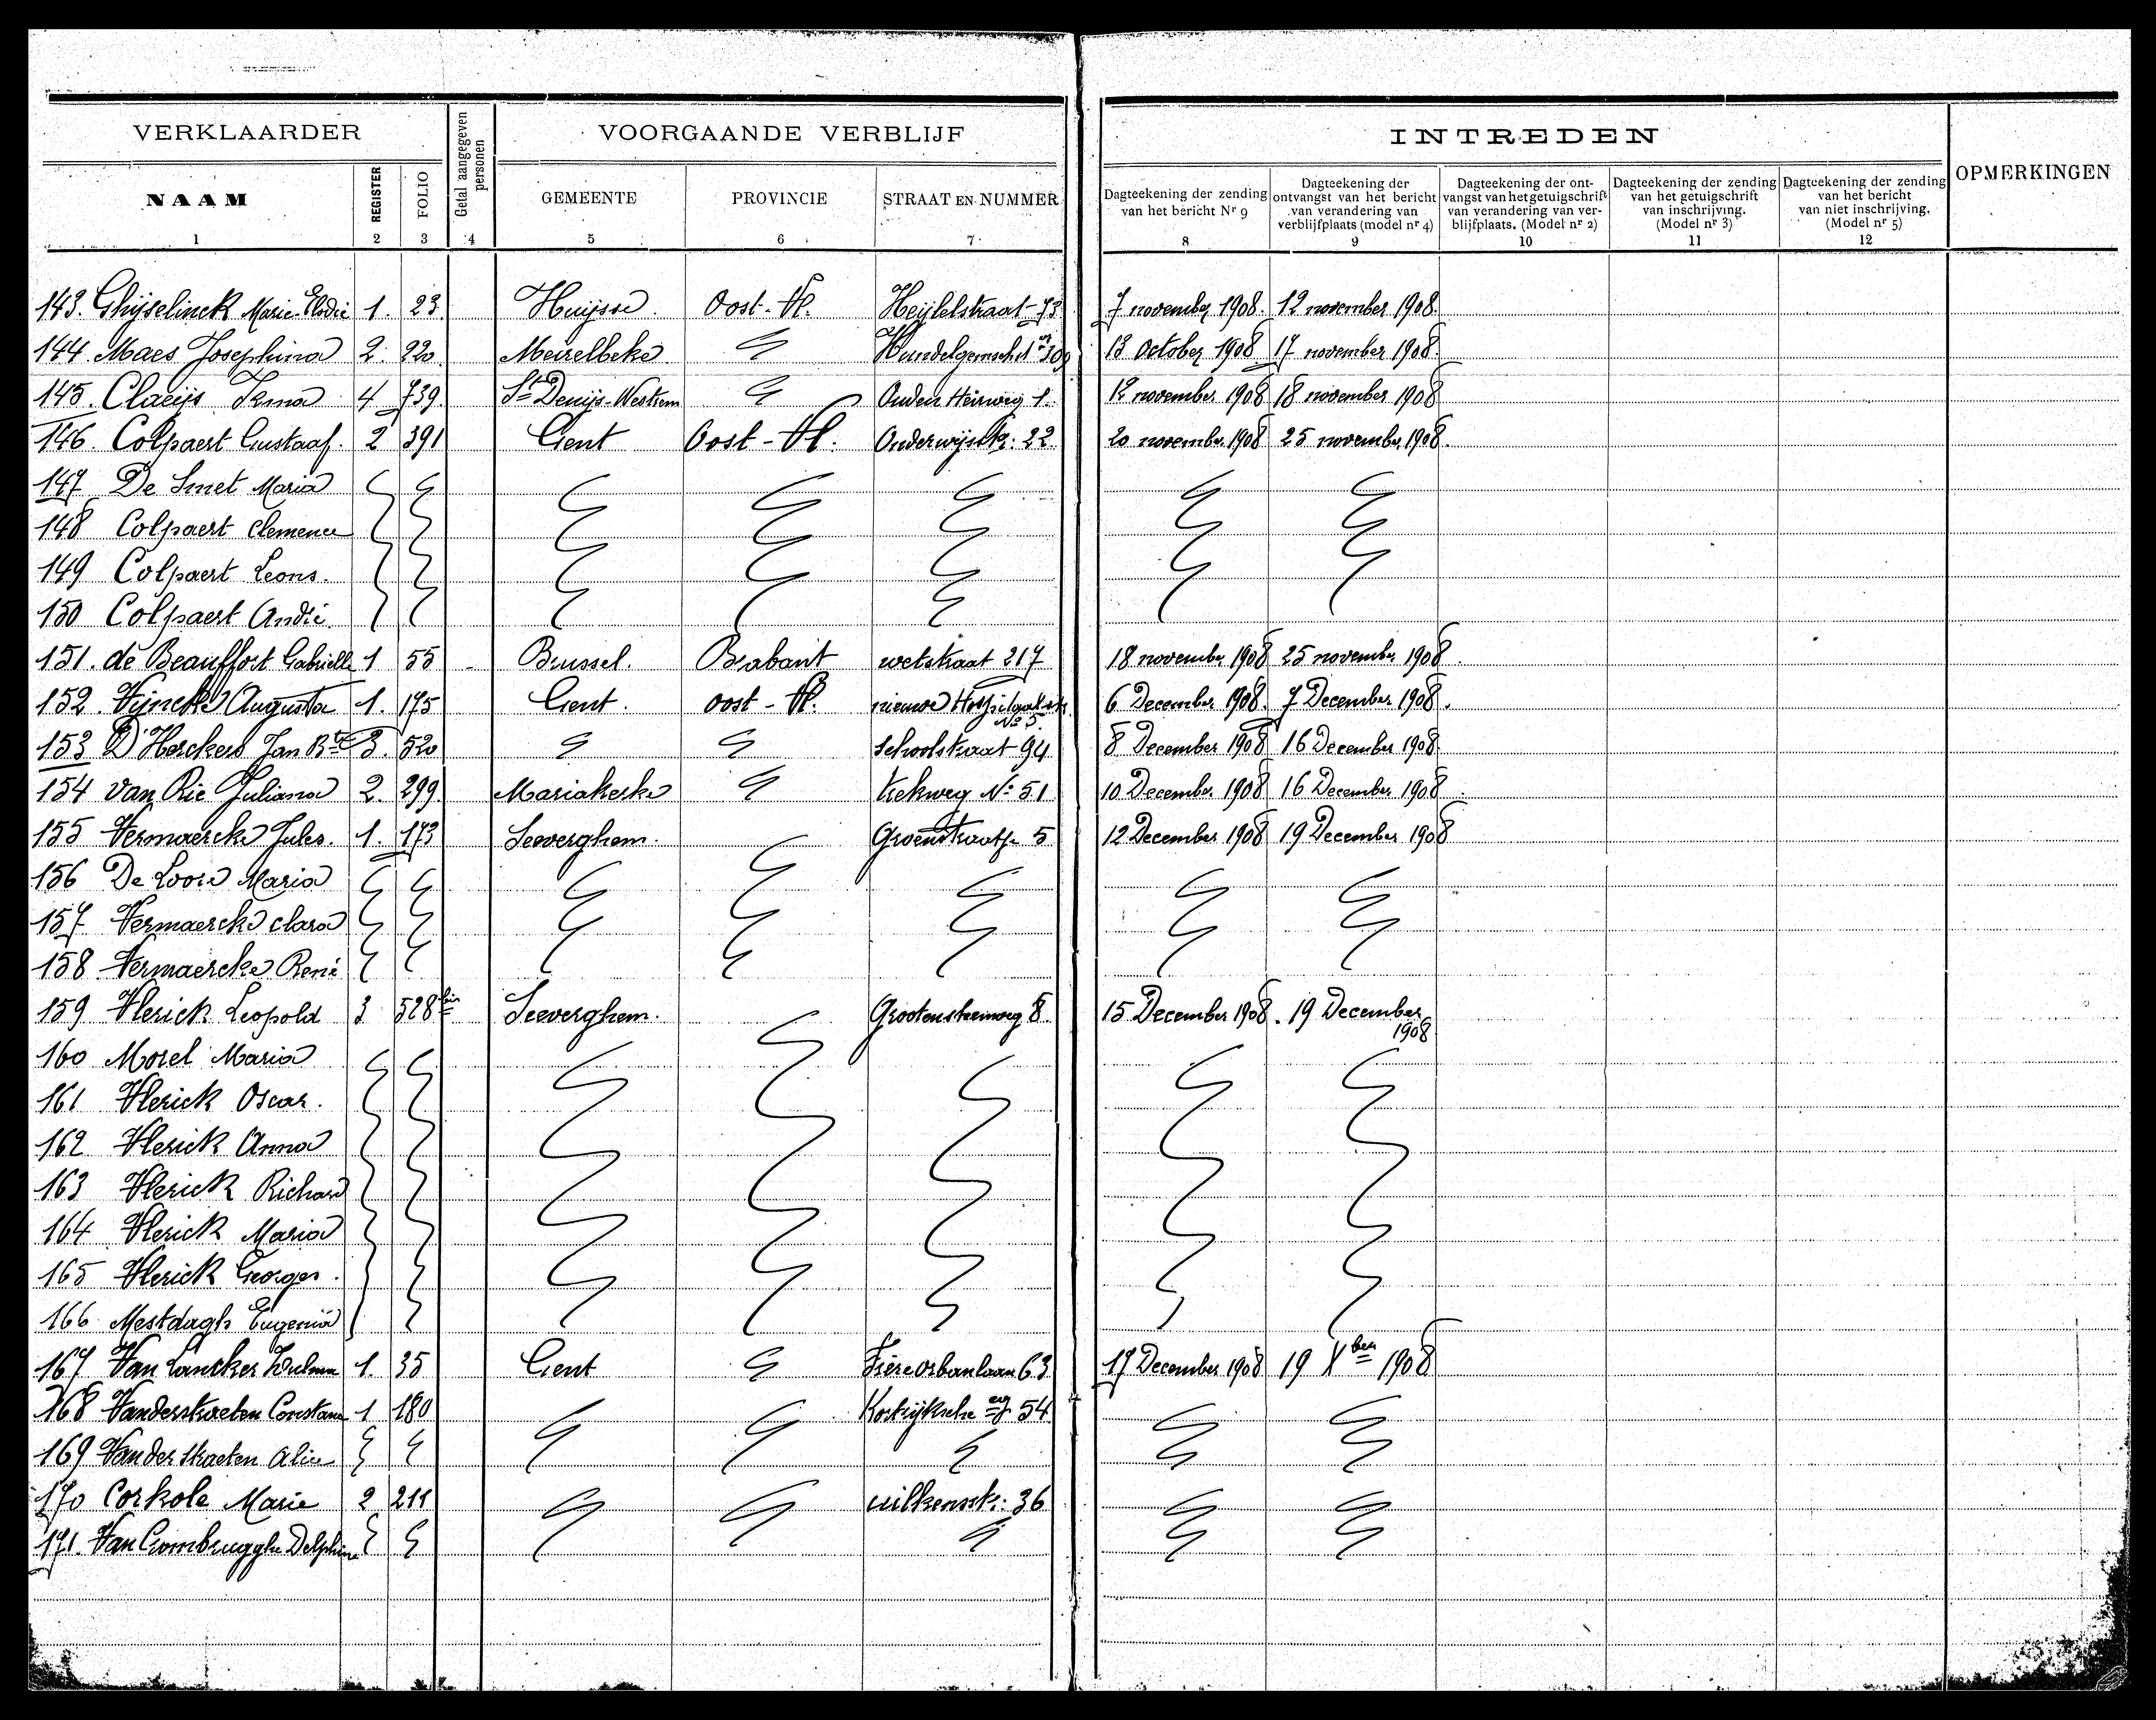 VERKLAARDER
Getal aangegeven personen
VOORGAANDE VERBLIJF
INTREDEN
OPMERKINGEN
NAAM
REGISTER
FOLIO
GEMEENTE
PROVINCIE
STRAAT EN NUMMER
Dagteekening der zending van het bericht Nr 9
Dagteekening der ontvangst van het bericht van verandering van verblijfplaats (model nr 4)
Dagteekening der ontvangst van het getuigschrift van verandering van verblijfplaats. (Model nr 2)
Dagteekening der zending van het getuigschrift van inschrijving. (Model nr 3)
Dagteekening der zending van het bericht van niet inschrijving. (Model nr 5)
1 2 3 4 5 6 7 8 9 10 11 12
143. Ghijselinck Marie-Elodie 1. 23. Huijsse. Oost-Vl. 73 7 november 1908. 12 november 1908.
144. Maes Josephina 2. 220 Meirelbeke 309 13 October 1908 17 november 1908.
145. Claeijs Irma 4 739. St Denijs-Westrem Ouden Heirweg 1. 12 november 1908 18 november 1908
146. Colpaert Gustaaf. 2 391 Gent Oost-Vl. Onderwijsstr: 22 20 november 1908 25 november 1908.
147 De Smet Maria
148 Colpaert Clemence
149 Colpaert Leons.
150 Colpaert André.
151. de Beauffort Gabrielle 1 55 - Brussel. Brabant wetstraat 217 18 november 1908 25 november 1908.
152. Vijncke Augusta 1. 175 Gent. Oost-Vl. nieuwe No 5. 6 December 1908. 7 December 1908.
153 D'Herckers Jan Bte 3. 520 Schoolstraat 94 8 December 1908 16 December 1908
154 Van Rie Juliana 2. 299. Mariakerke Trekweg No 51 10 December 1908 16 December 1908.
155 Vermaercke Jules. 1. 173 Seeverghem. Groenstraatje 5 12 December 1908 19 December 1908
156 De Loore Maria
157 Vermaercke Clara
158 Vermaercke René
159 Vlerick Leopold 3 528 bis Seeverghem. Grootensteenweg 8. 15 December 1908. 19 December 1908
160 Morel Maria
161 Vlerick Oscar.
162 Vlerick Anna
163 Vlerick Richard
164 Vlerick Maria
165 Vlerick Georges.
166 Mestdagh Eugenia
167 Van Lancker Zulma 1. 35 Gent Frère orbanlaan 63 17 December 1908 19 Xber 1908
168 Vanderstraeten Constant 1 180 Kortrijksche 54
169 Van der Straeten Alice
170 Corkole Marie 2 211 36
171. Van Crombrugghe Delphine